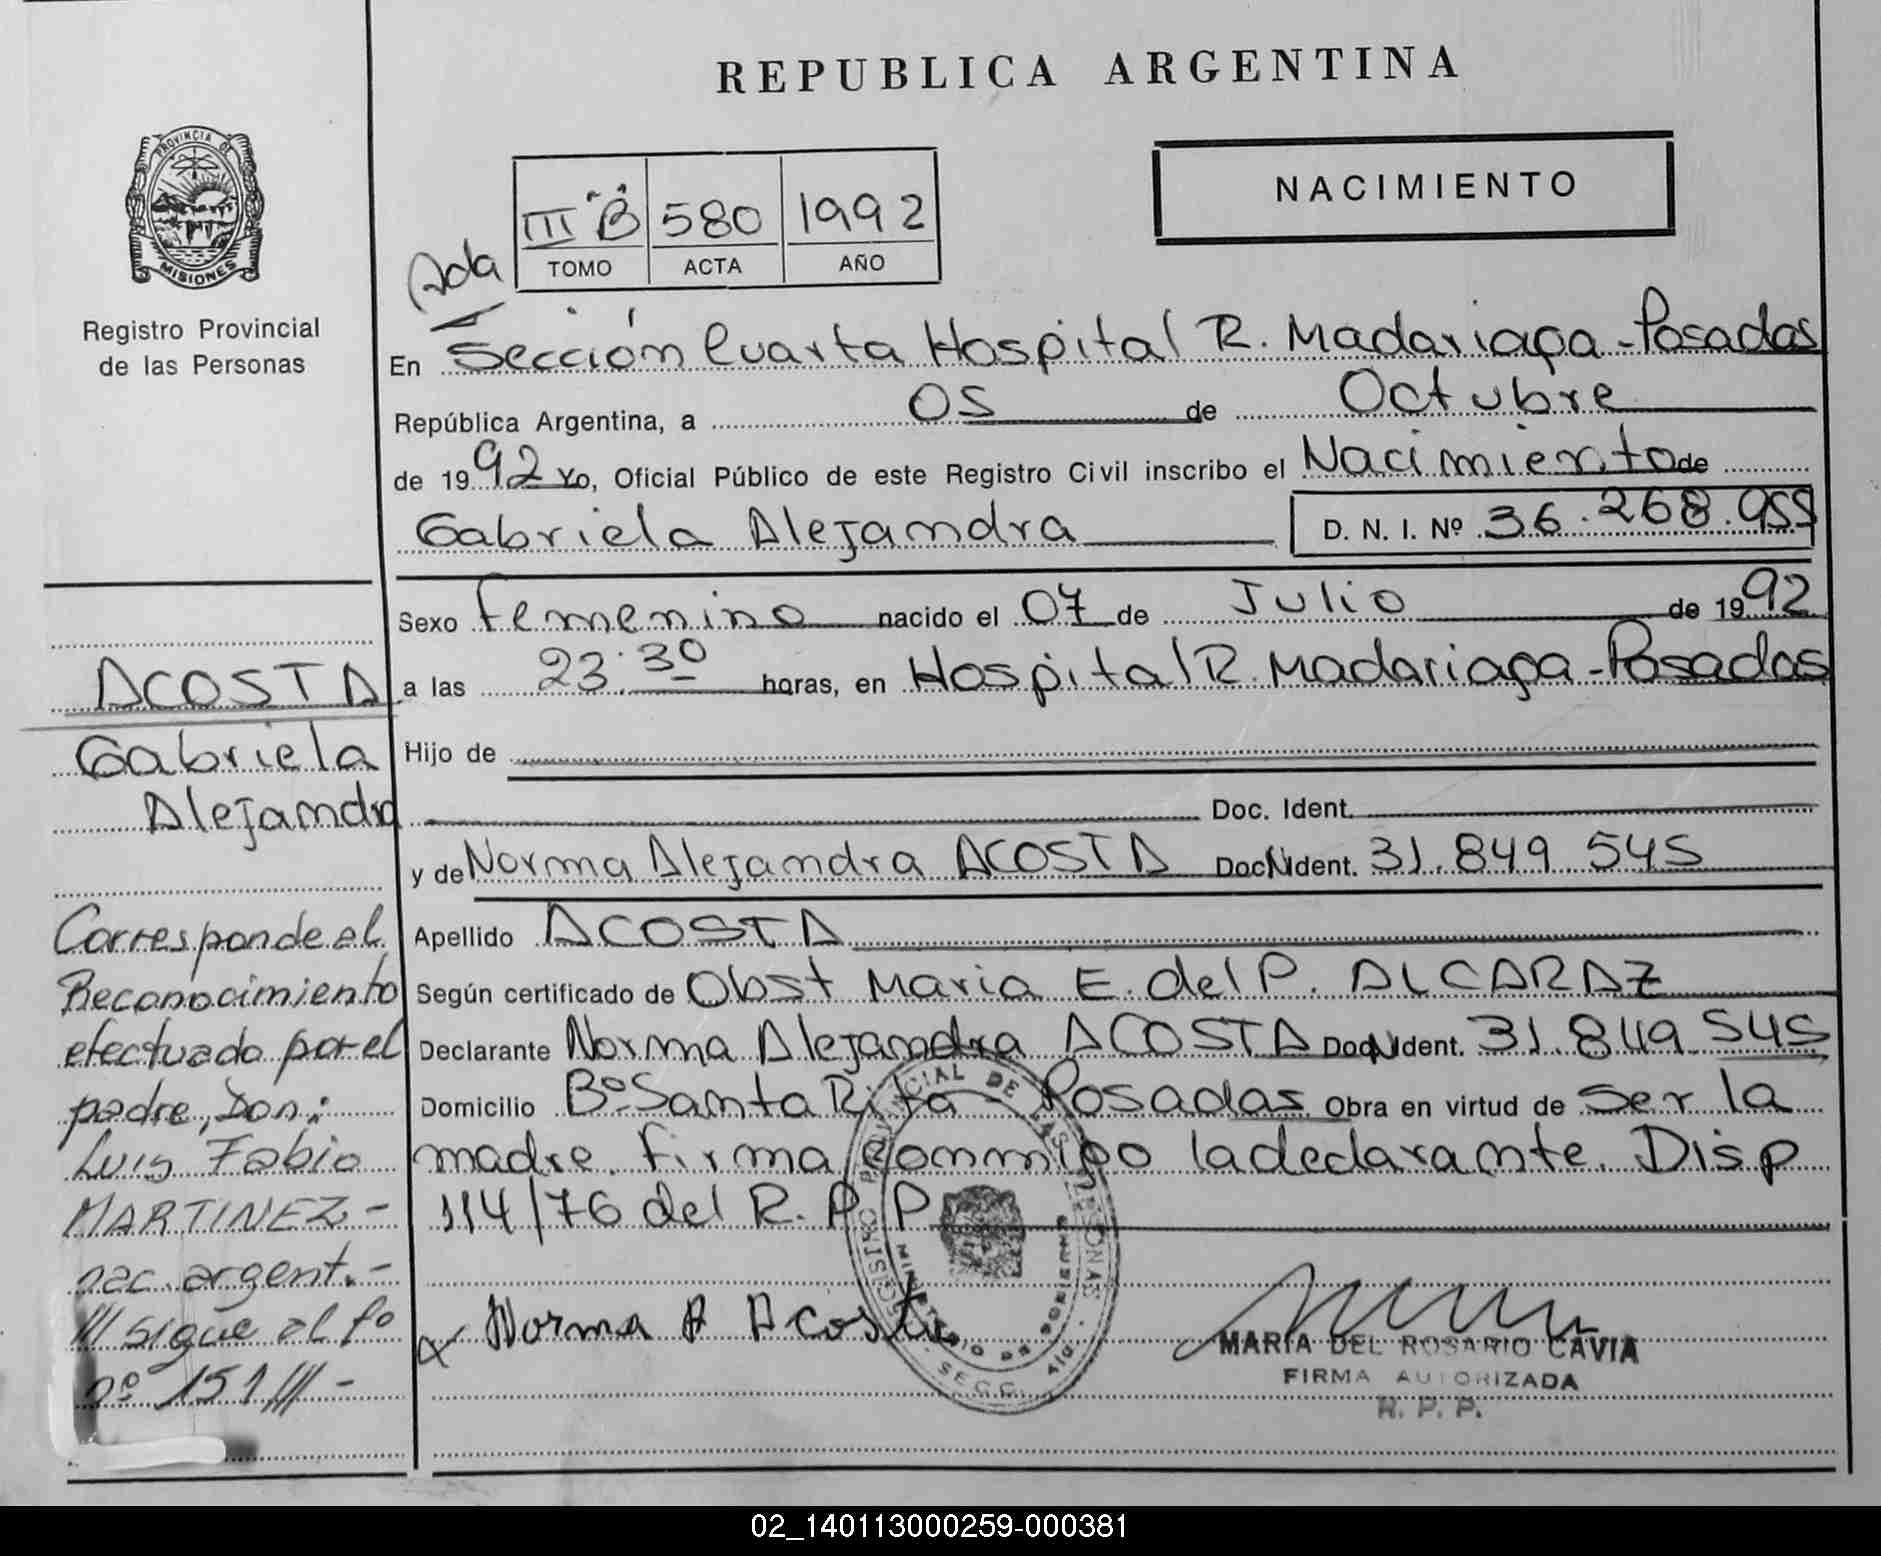 REPUBLICA ARGENTINA
PROVINCIA DE
MISIONES
Registro Provincial
de las Personas
NACIMIENTO
III "B" 580 1992
TOMO ACTA AÑO
Ada
En Sección Cuarta Hospital R. Madariaga - Posadas
República Argentina, a 05 de Octubre
de 1992 Yo, Oficial Público de este Registro Civil inscribo el Nacimiento de
Gabriela Alejandra D. N. I. Nº 36.268.955
Sexo femenino nacido el 07 de Julio de 1992
a las 23:30 horas, en Hospital R. Madariaga - Posadas
Hijo de
Doc. Ident.
y de Norma Alejandra ACOSTA Doc N Ident. 31.849.545
Apellido ACOSTA
Según certificado de Obst Maria E. del P. ALCARAZ
Declarante Norma Alejandra ACOSTA Doc N Ident. 31.849.545
Domicilio Bº Santa Rita - Posadas Obra en virtud de ser la
madre. firma conmigo la declarante. Disp
114/76 del R. P. P.
Norma A Acosta
MARIA DEL ROSARIO CAVIA
FIRMA AUTORIZADA
R. P. P.
ACOSTA
Gabriela
Alejandra
Corresponde al
Reconocimiento
efectuado por el
padre, Don:
Luis Fabio
MARTINEZ -
nac. argent. -
/// sigue al fo
nº 151 /// -
REGISTRO PROVINCIAL DE LAS PERSONAS
MINISTERIO DE GOBIERNO
SECC. 4ta.
02_140113000259-000381